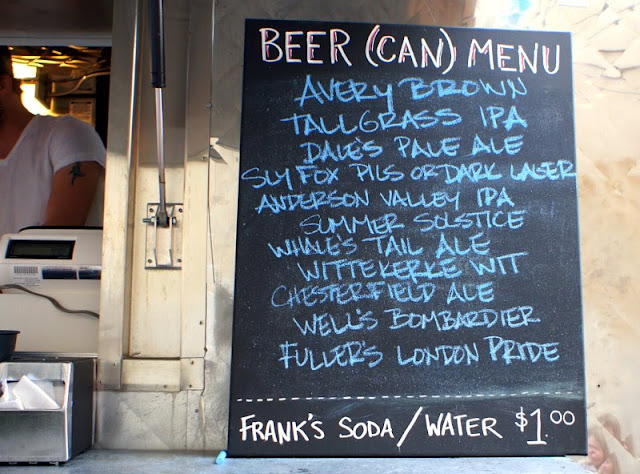 BEER (CAN) MENU
AVERY BROWN
TALLGRASS IPA
DALE'S PALE ALE
SLY FOX PILS OR DARK LAGER
ANDERSON VALLEY IPA
SUMMER SOLSTICE
WHALE'S TAIL ALE
WITTEKERKE WIT
CHESTERFIELD ALE
WELL'S BOMBARDIER
FULLER'S LONDON PRIDE
FRANK'S SODA/WATER $1.00